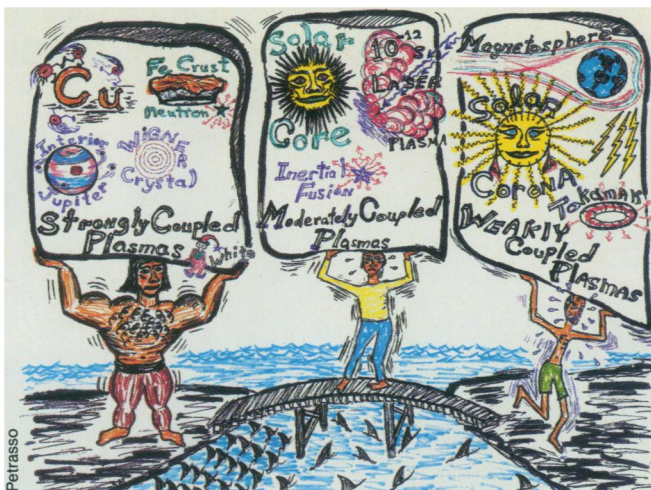 Cu
Fe Crust
Neutron
Interior
Jupiter
WIGNER
Crystal
Strongly Coupled
Plasmas
White
Solar
Core
10⁻¹² s
LASER
PLASMA
Inertial
Fusion
Moderately Coupled
Plasmas
Magnetosphere
Solar
Corona
Tokamak
WEAKLY
Coupled
Plasmas
Petrasso